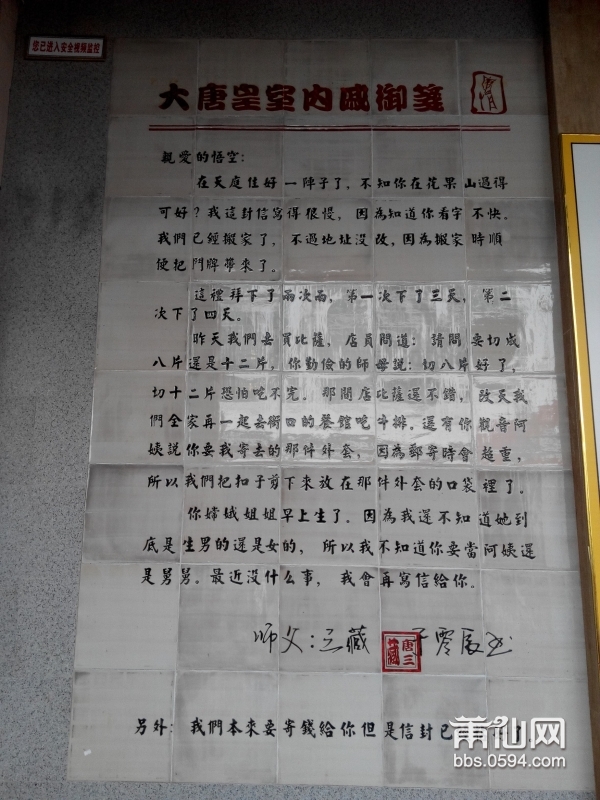 您已进入安全视频监控
大唐皇室内戚御箋
親愛的悟空：
在天庭住好一陣子了，不知你在花果山過得
可好？我這封信寫得很慢，因為知道你看字不快。
我們已經搬家了，不過地址没改，因為搬家時順
便把門牌帶來了。
這禮拜下了兩次雨，第一次下了三天，第二
次下了四天。
昨天我們去買比薩，店員問道：請問要切成
八片還是十二片，你勤儉的師母説：切八片好了，
切十二片恐怕吃不完。那間店比薩還不錯，改天我
們全家再一起去街口的餐館吃牛排。還有你觀音阿
姨説你要我寄去的那件外套，因為郵寄時會超重，
所以我們把扣子剪下來放在那件外套的口袋裡了。
你嫦娥姐姐早上生了。因為我還不知道她到
底是生男的還是女的，所以我不知道你要當阿姨還
是舅舅。最近没什么事，我會再寫信給你。
师父：三藏
唐三
另外：我們本來要寄錢給你但是信封已
莆仙网
bbs.0594.com